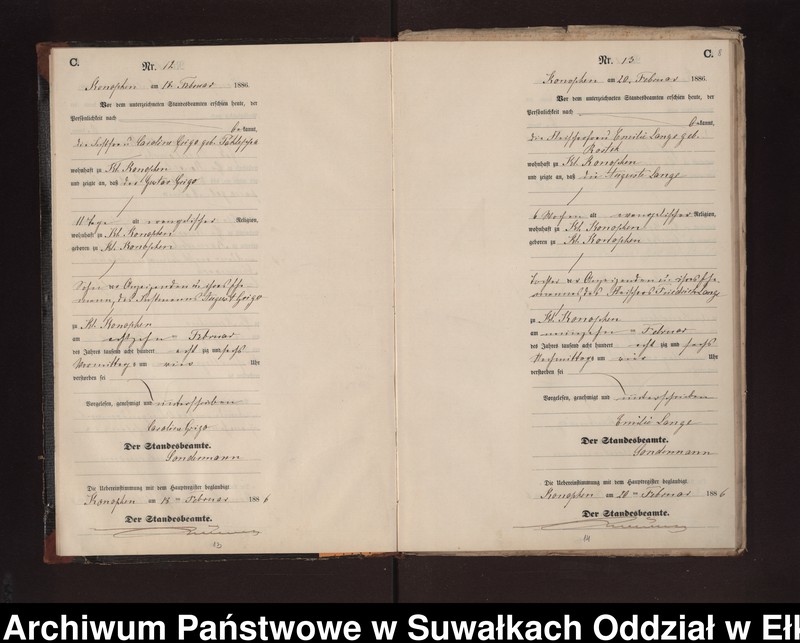 C.
Nr. 12
Konopken am 18. Februar 1886.
Vor dem unterzeichneten Standesbeamten erschien heute, der
Persönlichkeit nach
bekannt,
die Carolina Grigo geb.
wohnhaft zu Kl. Konopken
und zeigte an, daß der Gustav Grigo
11 Tage alt evangelischer Religion,
wohnhaft zu Kl. Konopken
geboren zu Kl. Konopken
Sohn der Anzeigenden u ihres Ehe
mannes, des August Grigo
zu Kl. Konopken
am achtzehn ten Februar
des Jahres tausend acht hundert acht zig und sechs
Vormittags um vier Uhr
verstorben sei
Vorgelesen, genehmigt und unterschrieben
Carolina Grigo
Der Standesbeamte.
Sondermann
Die Uebereinstimmung mit dem Hauptregister beglaubigt
Konopken am 18 ten Februar 1886
Der Standesbeamte.
13
C. 8
Nr. 13
Konopken am 20. Februar 1886.
Vor dem unterzeichneten Standesbeamten erschien heute, der
Persönlichkeit nach
bekannt,
die Emilie Lange geb.
wohnhaft zu Kl. Konopken
und zeigte an, daß die Auguste Lange
6 Wochen alt evangelischer Religion,
wohnhaft zu Kl. Konopken
geboren zu Kl. Konopken
Tochter der Anzeigenden u ihres Ehe
mannes, des Friedrich Lange
zu Kl. Konopken
am neunzehn ten Februar
des Jahres tausend acht hundert acht zig und sechs
Nachmittags um vier Uhr
verstorben sei
Vorgelesen, genehmigt und unterschrieben
Emilie Lange
Der Standesbeamte.
Sondermann
Die Uebereinstimmung mit dem Hauptregister beglaubigt
Konopken am 20 ten Februar 1886
Der Standesbeamte.
14
Archiwum Państwowe w Suwałkach Oddział w Ełk